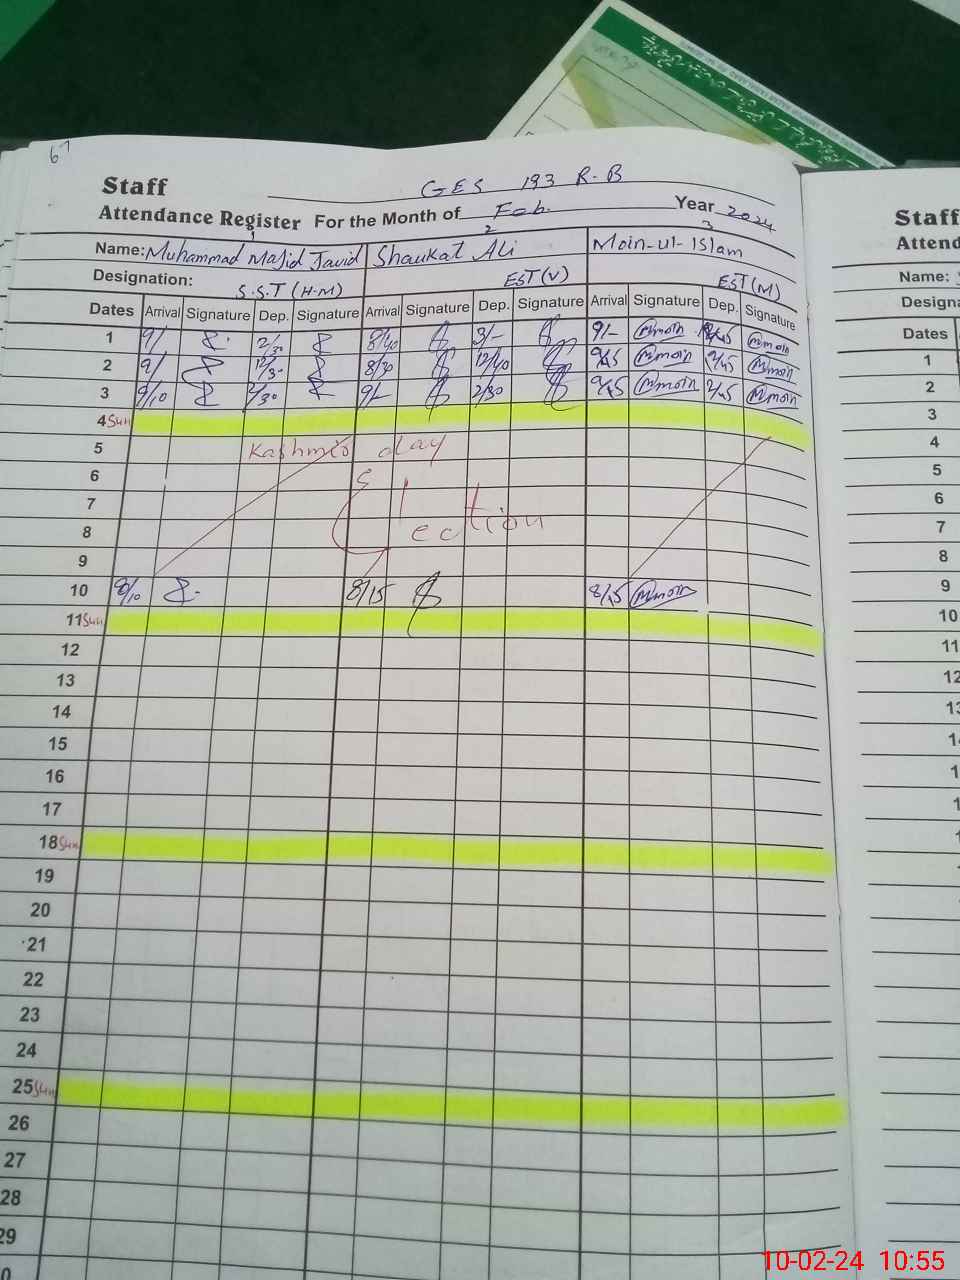 67
Staff GES 193 R.B
Attendance Register For the Month of Feb. Year 2024
1 2 3
Name: Muhammad Majid Javid Shaukat Ali Moin-ul-Islam
Designation: S.S.T (H.M) EST(V) EST(M)
Dates Arrival Signature Dep. Signature Arrival Signature Dep. Signature Arrival Signature Dep. Signature
1 9/ 2/30 8/40 3/- 9/- Mmoin Mmoin
2 9/ 12/30 8/30 12/40 Mmoin Mmoin
3 9/10 2/30 9/- 2/30 Mmoin Mmoin
4 Sun
5 Kashmir day
6
7
8 Election
9
10 8/10 8/15 8/15 Mmoin
11 Sun
12
13
14
15
16
17
18 Sun
19
20
21
22
23
24
25 Sun
26
27
28
29
Staff
Attend
Name:
Designa
Dates
1
2
3
4
5
6
7
8
9
10
11
12
10-02-24 10:55